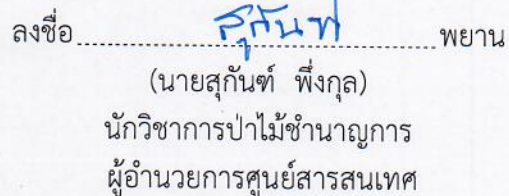 ลงชื่อ สุกันฑ์ พยาน
(นายสุกันฑ์ พึ่งกุล)
นักวิชาการป่าไม้ชำนาญการ
ผู้อำนวยการศูนย์สารสนเทศ